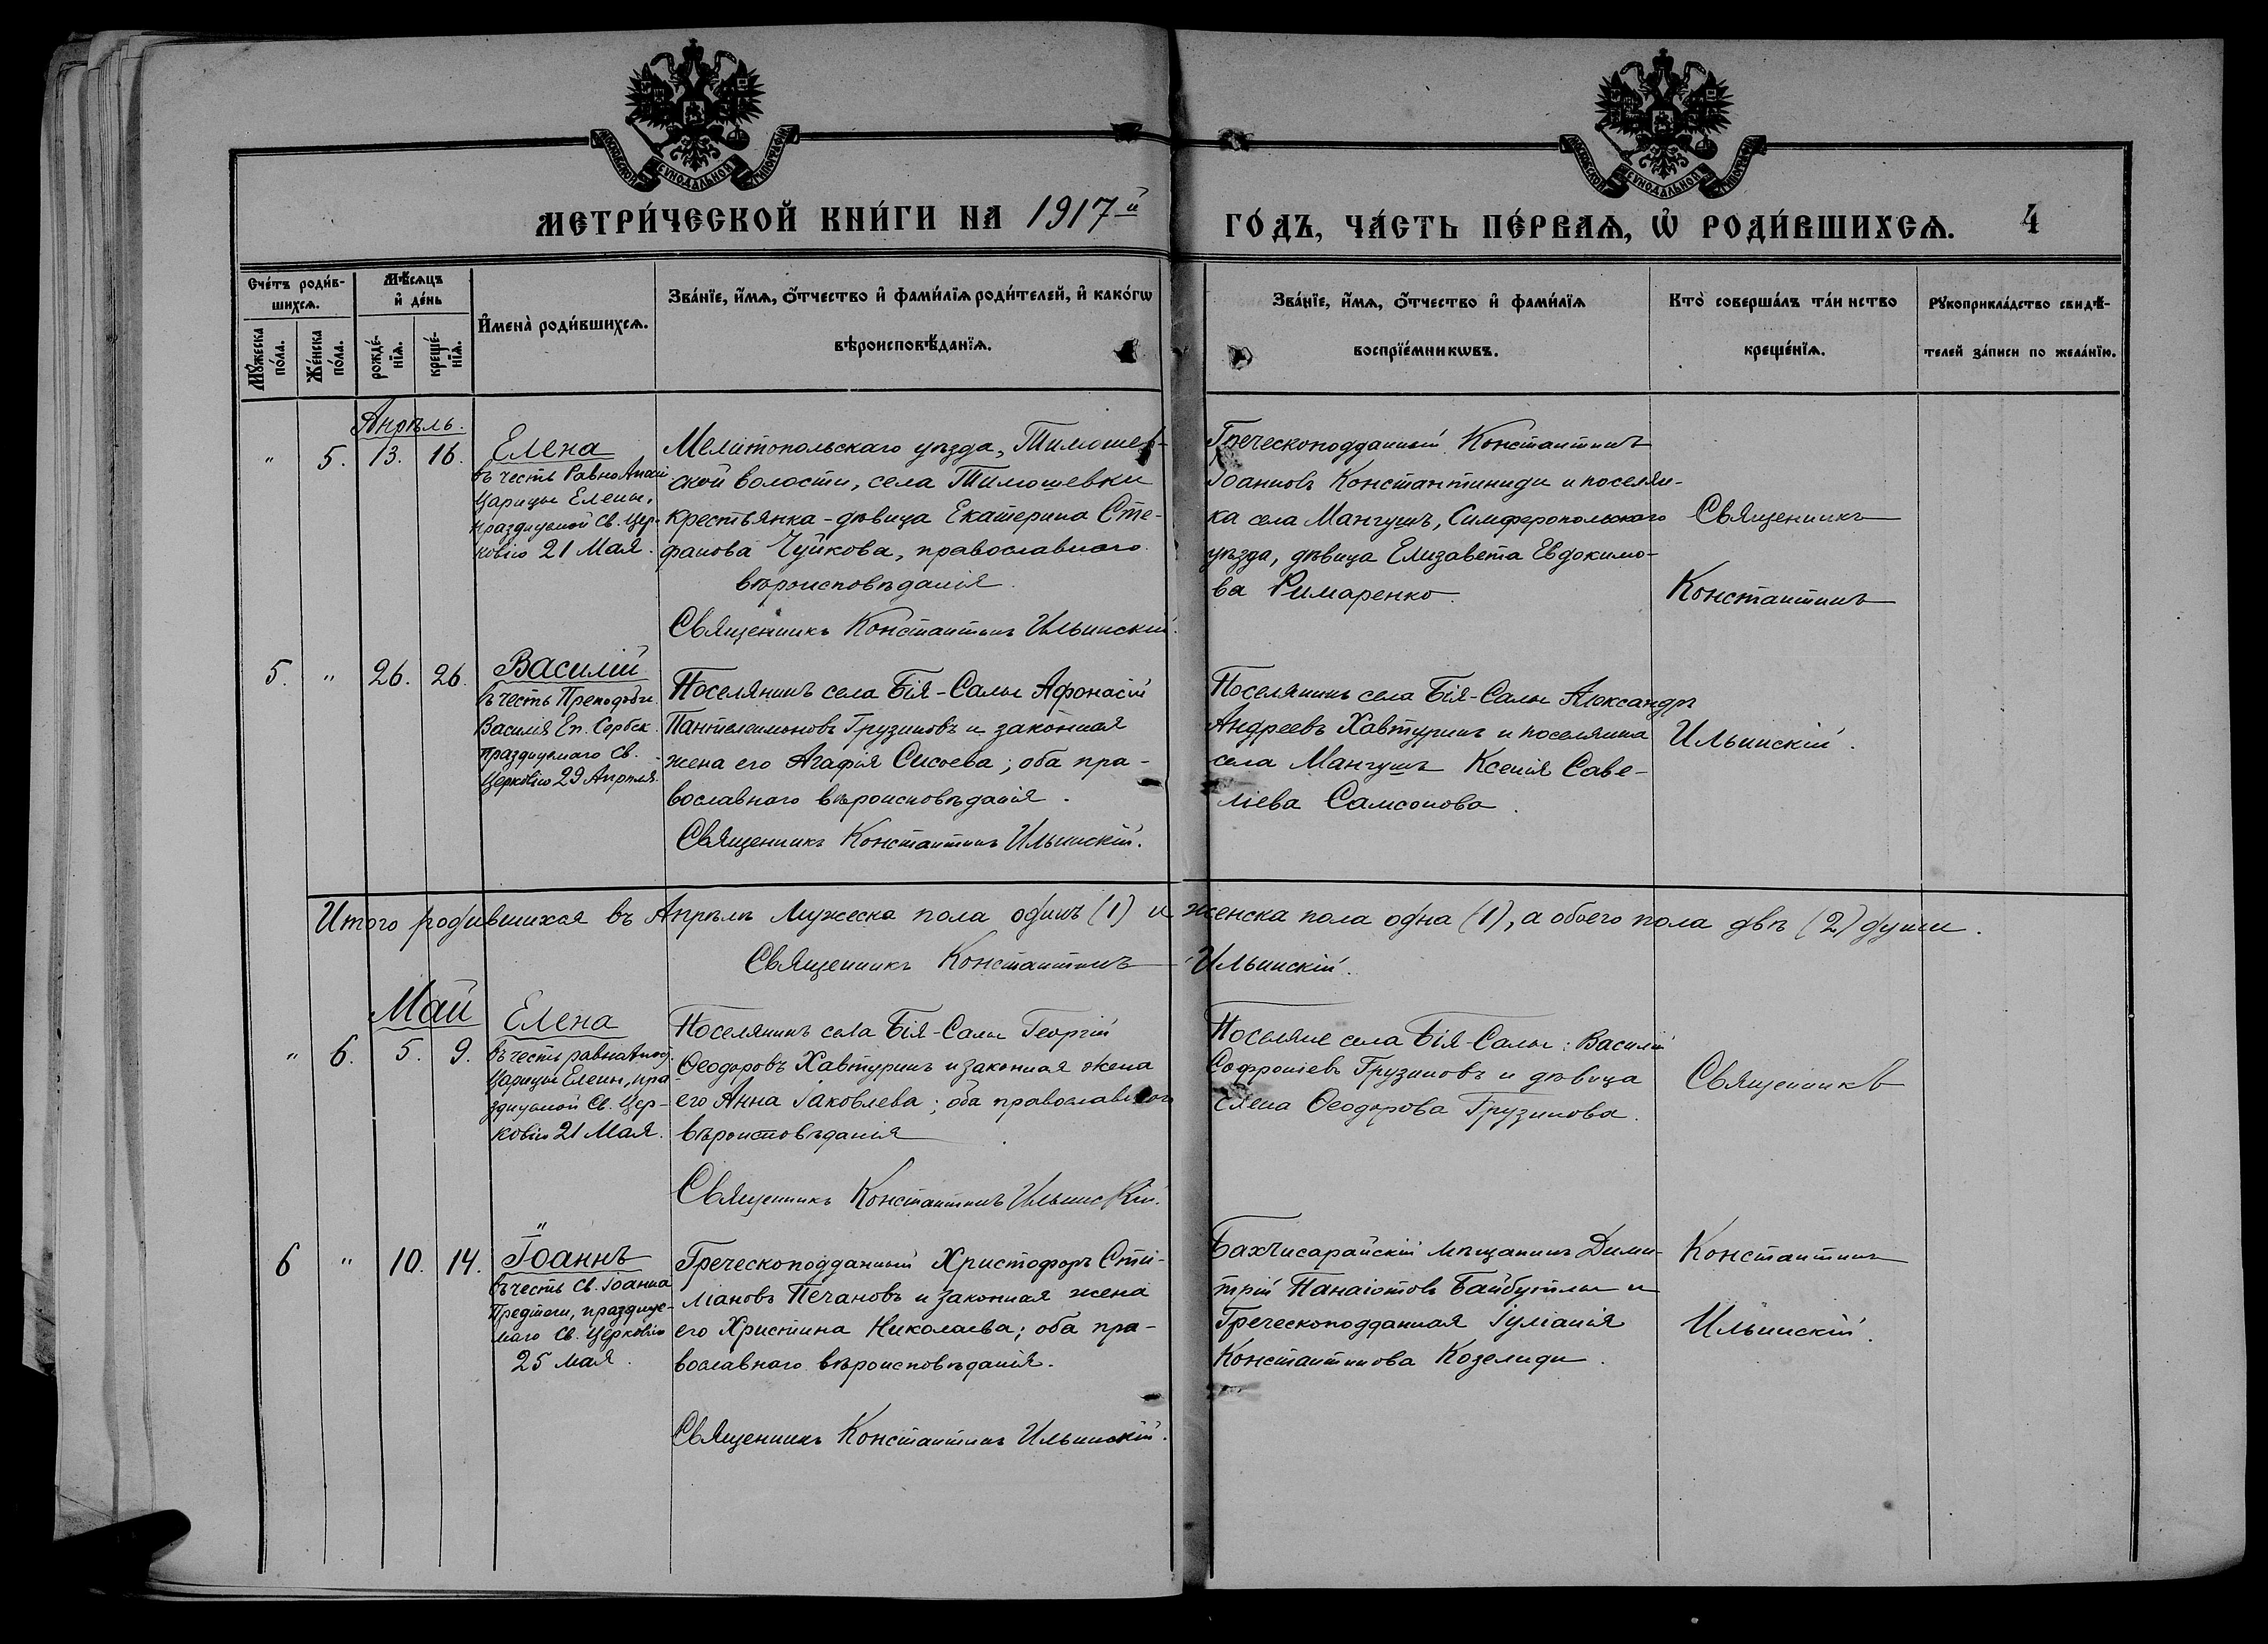 МЕТРИ́ЧЕСКОЙ КНИ́ГИ НА 1917й ГО́ДЪ, ЧА́СТЬ ПЕ́РВАѦ, Ѡ҆ РОДИ́ВШИХСѦ. 4
Сче́тъ роди́в-
шихсѧ.
Мѣ́сѧцъ
и҆ де́нь
И҆мена̀ роди́вшихсѧ.
Зва́нїе, и҆́мѧ, ѻ҆́тчество и҆ фами́лїѧ роди́телей, и҆ како́гѡ
вѣроисповѣ́данїѧ.
Зва́нїе, и҆́мѧ, ѻ҆́тчество и҆ фами́лїѧ
воспрїе́мникѡвъ.
Кто̀ соверша́лъ та́инство
креще́нїѧ.
Рꙋкоприкла́дство свидѣ́-
телей за́писи по жела́нїю.
Мꙋ́жеска
по́ла.
Же́нска
по́ла.
рожде́-
нїѧ.
креще́-
нїѧ.
Апрѣль.
" 5. 13. 16.
Елена
въ честь РавноАпост
Царицы Елены,
празднуемой Св. Цер-
ковію 21 Мая.
Мелитопольскаго уѣзда, Тимошев-
ской волости, села Тимошевки
крестьянка-дѣвица Екатерина Сте-
фанова Чуйкова, православнаго
вѣроисповѣданія.
Священникъ Константинъ Ильинскій.
Греческоподданный Константинъ
Іоанновъ Константиниди и поселян-
ка села Мангушъ, Симферопольскаго
уѣзда, дѣвица Елизавета Евдокимо-
ва Римаренко.
Священникъ
Константинъ
Ильинскій.
5. " 26. 26.
Василій
въ честь Преподобн.
Василія Еп. Сербск.
празднуемаго Св.
Церковію 29 Апрѣля.
Поселянинъ села Бія-Салы Афонасій
Пантелеимоновъ Грузиновъ и законная
жена его Агафія Сисоева; оба пра-
вославнаго вѣроисповѣданія.
Священникъ Константинъ Ильинскій.
Поселянинъ села Бія-Салы Александръ
Андреевъ Хавтуринъ и поселянка
села Мангушъ Ксенія Саве-
ліева Самсонова.
Итого родившихся въ Апрѣлѣ мужеска пола одинъ (1) и женска пола одна (1), а обоего пола двѣ (2) души.
Священникъ Константинъ Ильинскій.
Май
" 6. 5. 9.
Елена
въ честь равноАпост.
Царицы Елены, пра-
зднуемой Св. Цер-
ковію 21 Мая.
Поселянинъ села Бія-Салы Георгій
Ѳеодоровъ Хавтуринъ и законная жена
его Анна Іаковлева; оба православнаго
вѣроисповѣданія
Священникъ Константинъ Ильинскій.
Поселяне села Бія-Салы: Василій
Софроніевъ Грузиновъ и дѣвица
Елена Ѳеодорова Грузинова.
Священникъ
Константинъ
Ильинскій.
6 " 10. 14.
Іоаннъ
въ честь Св. Іоанна
Предтечи, празднуе-
маго Св. Церковію
25 мая.
Греческоподданный Христофоръ Сти-
ліановъ Печановъ и законная жена
его Христина Николаева; оба пра-
вославнаго вѣроисповѣданія.
Священникъ Константинъ Ильинскій.
Бахчисарайскій мѣщанинъ Дими-
трій Панаіотовъ Байбутлы и
Греческоподданная Іуліанія
Константинова Козелиди.